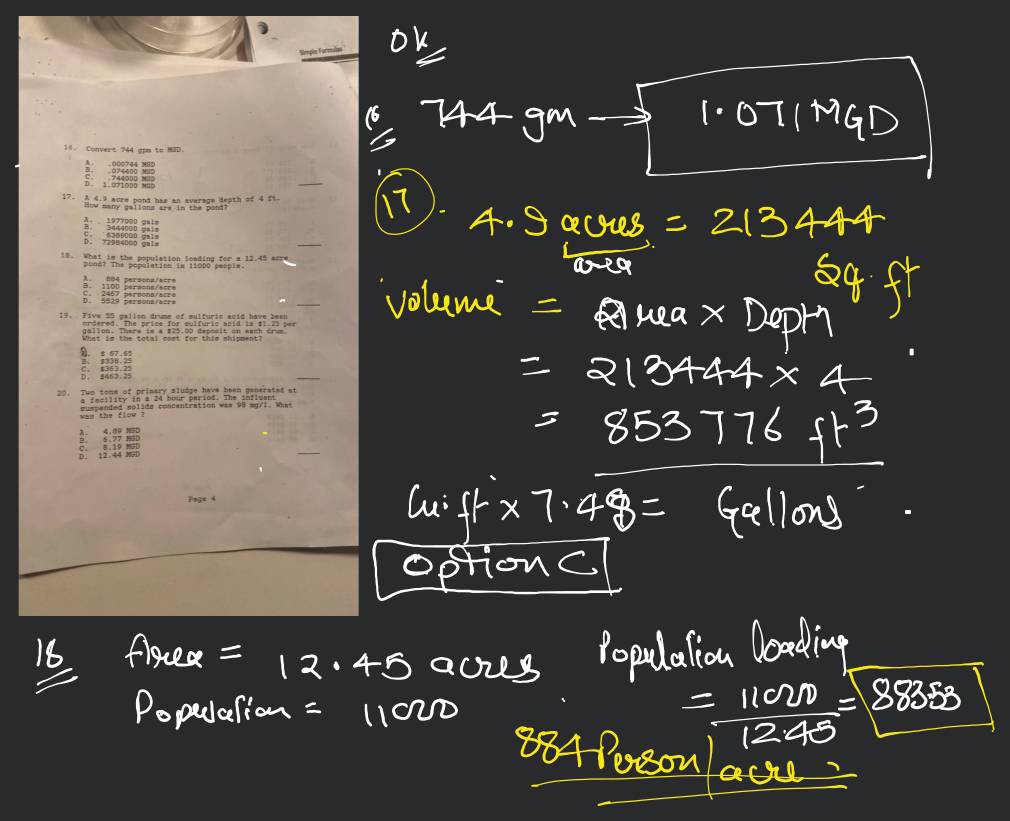 Simple Formulas
16. Convert 744 gpm to MGD.
A. .000744 MGD
B. .074400 MGD
C. .744000 MGD
D. 1.071000 MGD
17. A 4.9 acre pond has an average depth of 4 ft.
How many gallons are in the pond?
A. 1977000 gals
B. 3444000 gals
C. 6386000 gals
D. 72984000 gals
18. What is the population loading for a 12.45 acre
pond? The population is 11000 people.
A. 884 persons/acre
B. 1100 persons/acre
C. 2467 persons/acre
D. 5529 persons/acre
19. Five 55 gallon drums of sulfuric acid have been
ordered. The price for sulfuric acid is $1.23 per
gallon. There is a $25.00 deposit on each drum.
What is the total cost for this shipment?
$ 67.65
B. $338.25
C. $363.25
D. $463.25
20. Two tons of primary sludge have been generated at
a facility in a 24 hour period. The influent
suspended solids concentration was 98 mg/l. What
was the flow ?
A. 4.89 MGD
B. 6.77 MGD
C. 8.19 MGD
D. 12.44 MGD
Page 4
Ok
16 744 gm → 1.071 MGD
17. 4.9 acres = 213444
area
Sq. ft
Volume = Area x Depth
= 213444 x 4
= 853776 ft³
Cu.ft x 7.48 = Gallons
Option C
18 Area = 12.45 acres
Population = 11000
Population loading
= 11000 = 883.53
12.45
884 Person/acre